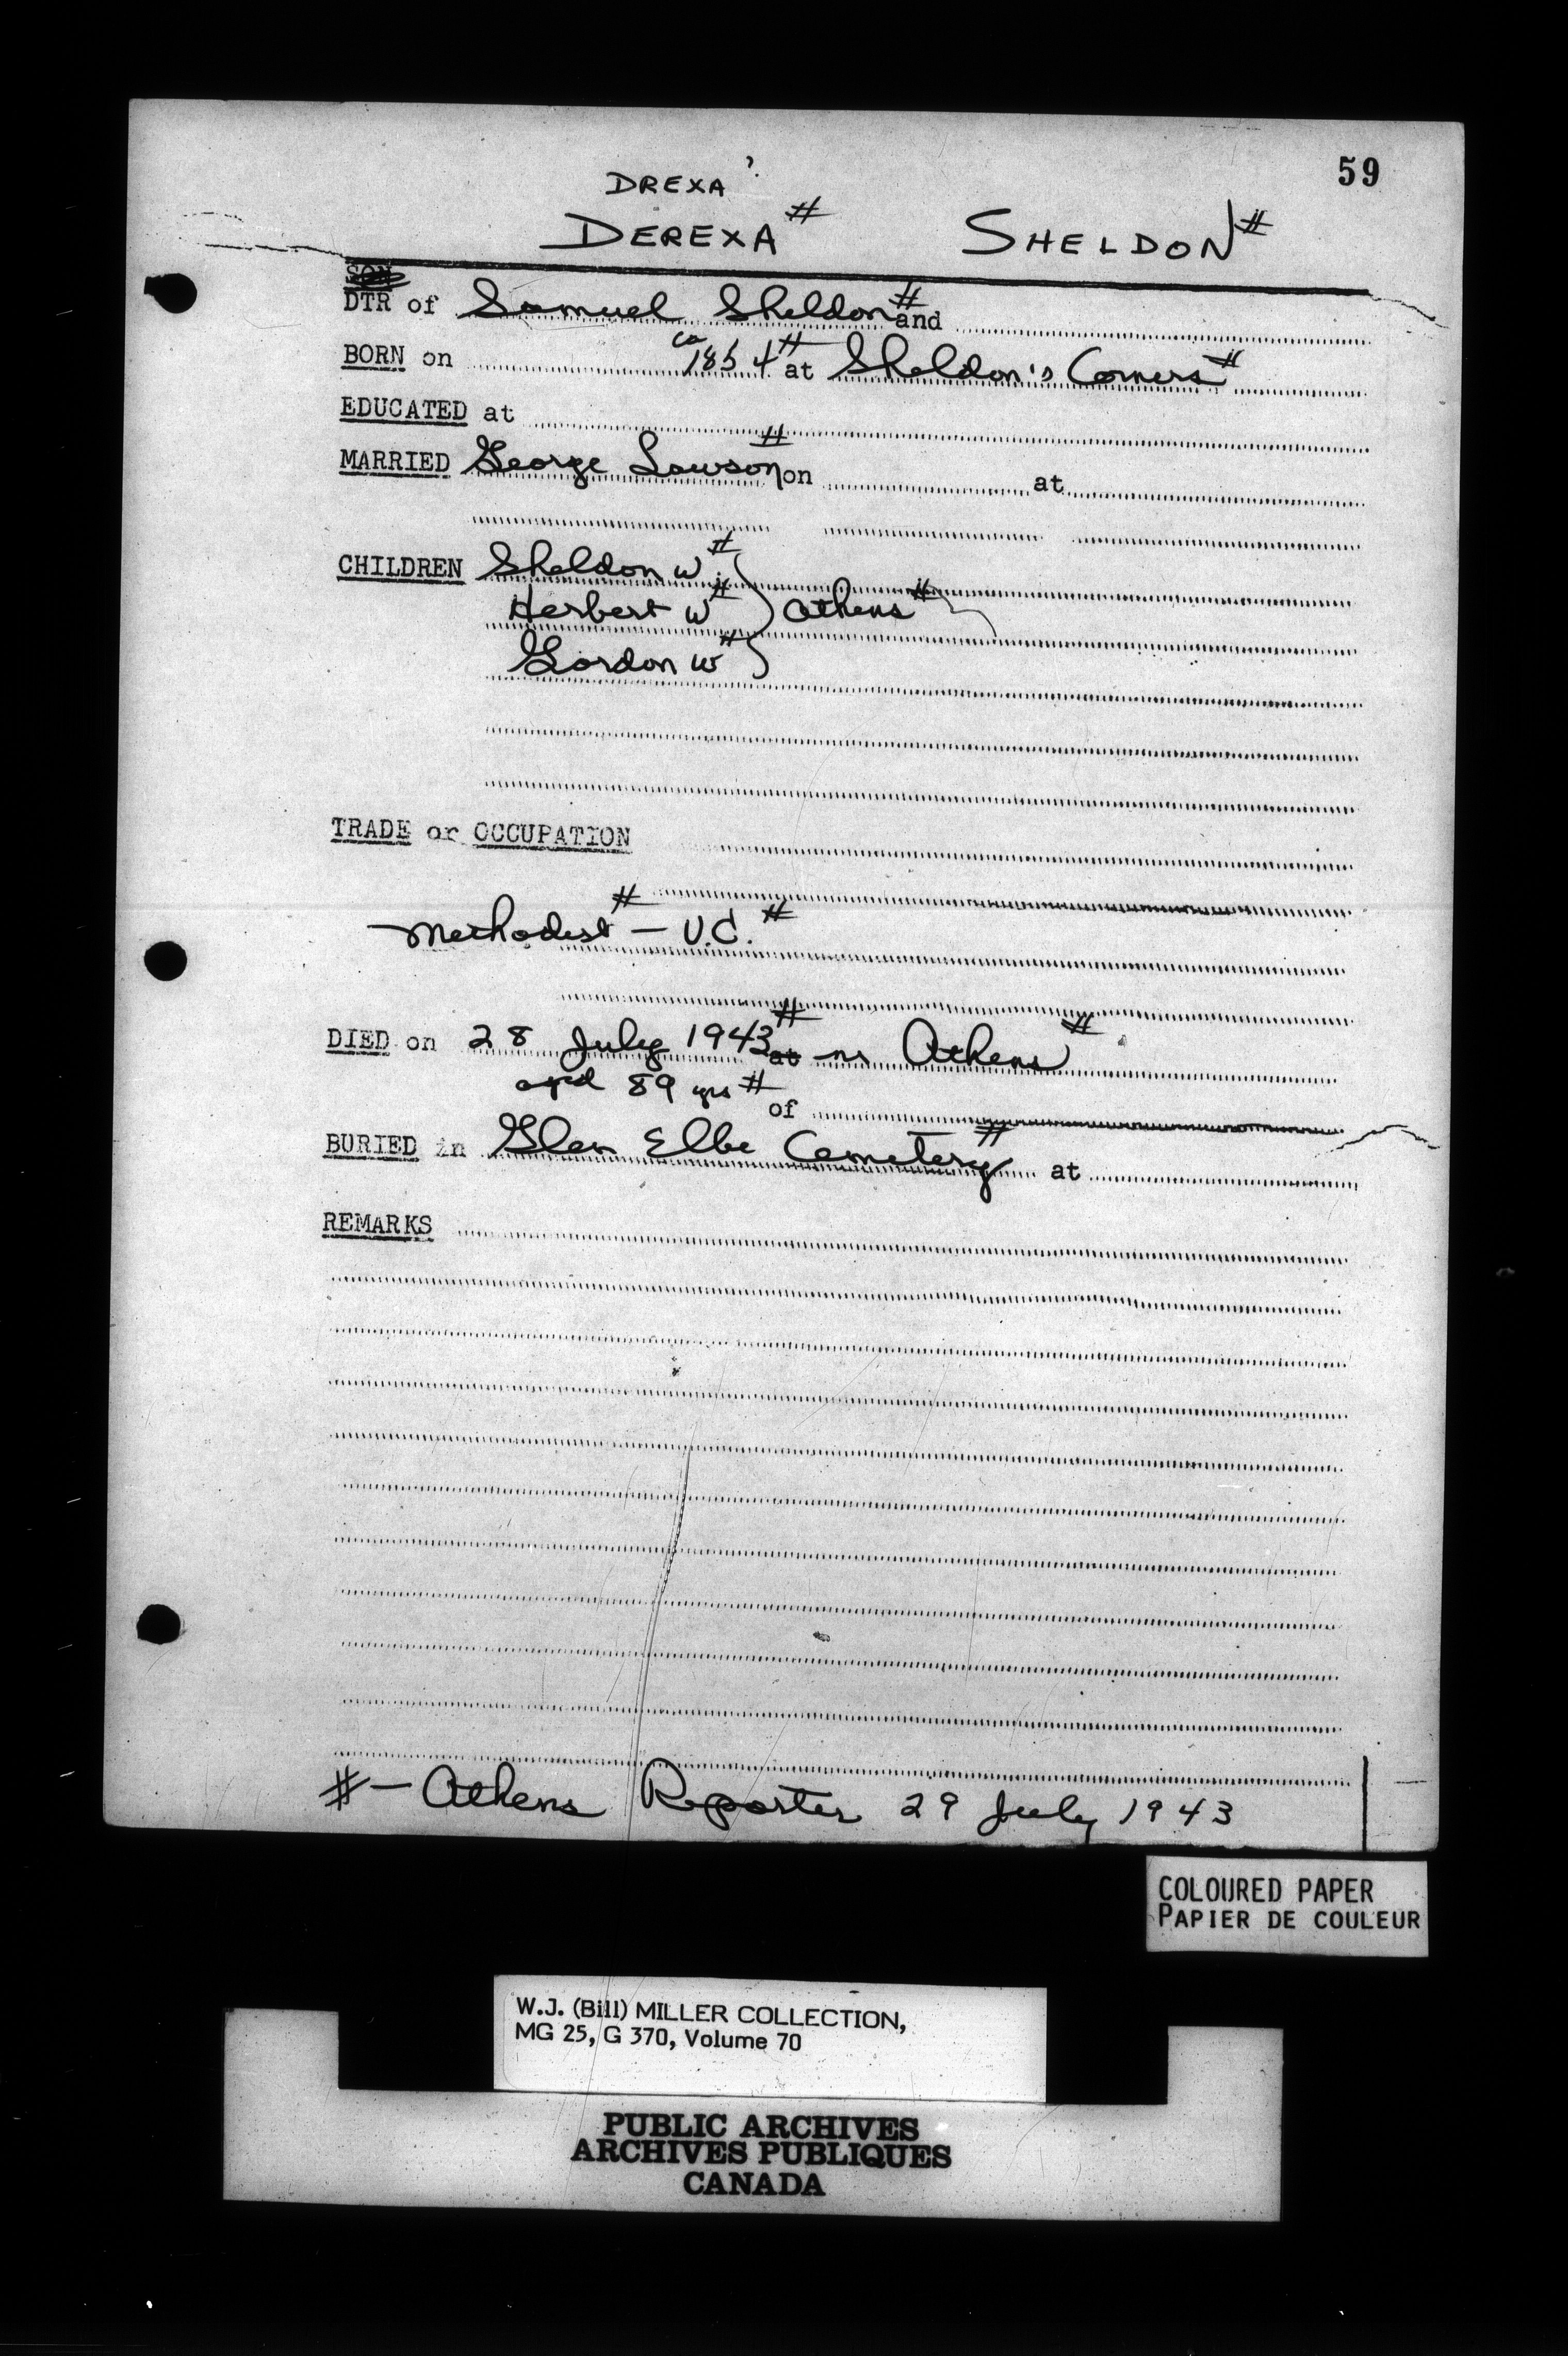 59
DREXA ?
DEREXA # SHELDON #
SON
DTR of Samuel Sheldon # and
BORN on ca 1854 # at Sheldon's Corners #
EDUCATED at
MARRIED George Lawson # on at
CHILDREN Sheldon W. #
Herbert W # } Athens #
Gordon W #
TRADE or OCCUPATION
Methodist # — U.C. #
DIED on 28 July 1943 # at nr Athens #
aged 89 yrs # of
BURIED in Glen Elbe Cemetery # at
REMARKS
# — Athens Reporter 29 July 1943
COLOURED PAPER
PAPIER DE COULEUR
W.J. (Bill) MILLER COLLECTION,
MG 25, G 370, Volume 70
PUBLIC ARCHIVES
ARCHIVES PUBLIQUES
CANADA